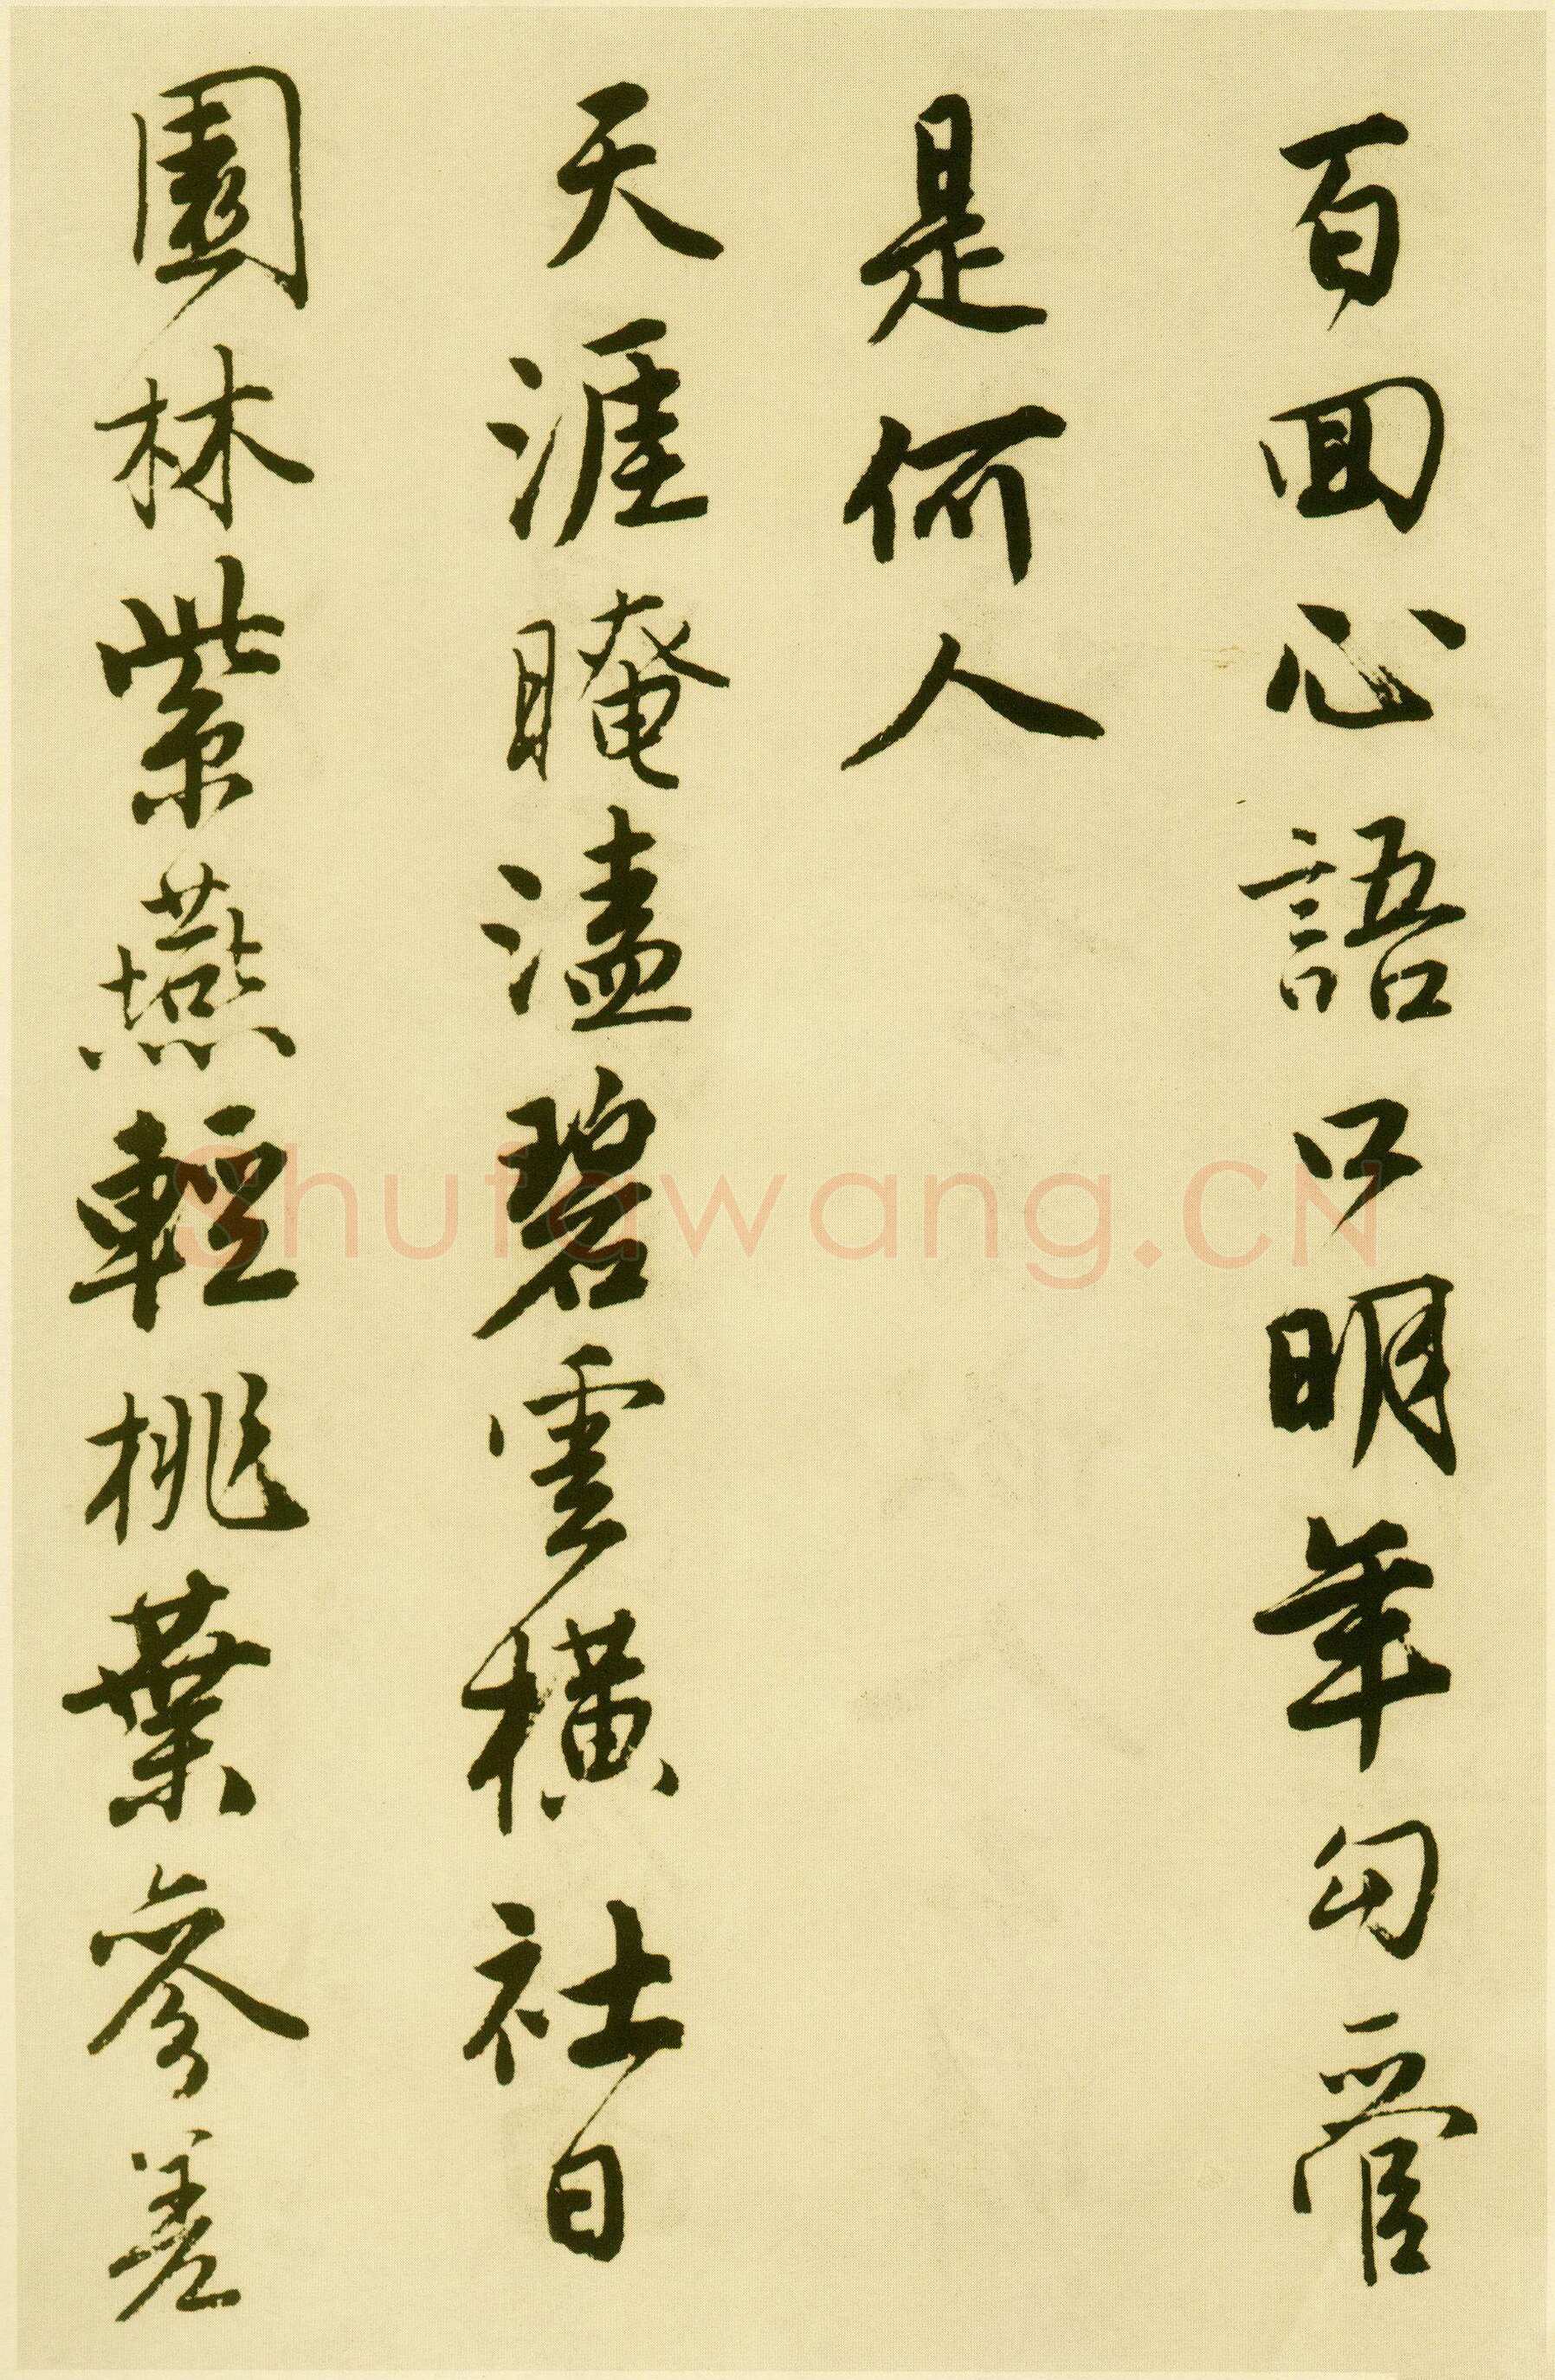 百回心語口明年勾管
是何人
天涯晻溘碧雲橫社日
園林紫燕輕桃葉參差
Shufawang.CN